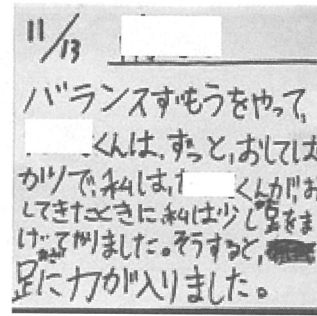 11/13
バランスすもうをやって、
くんは、ずっと、おしては
かりで、私は、くんが、お
してきたときに私は少し をま
げてかりました。そうすると、
足に力が入りました。